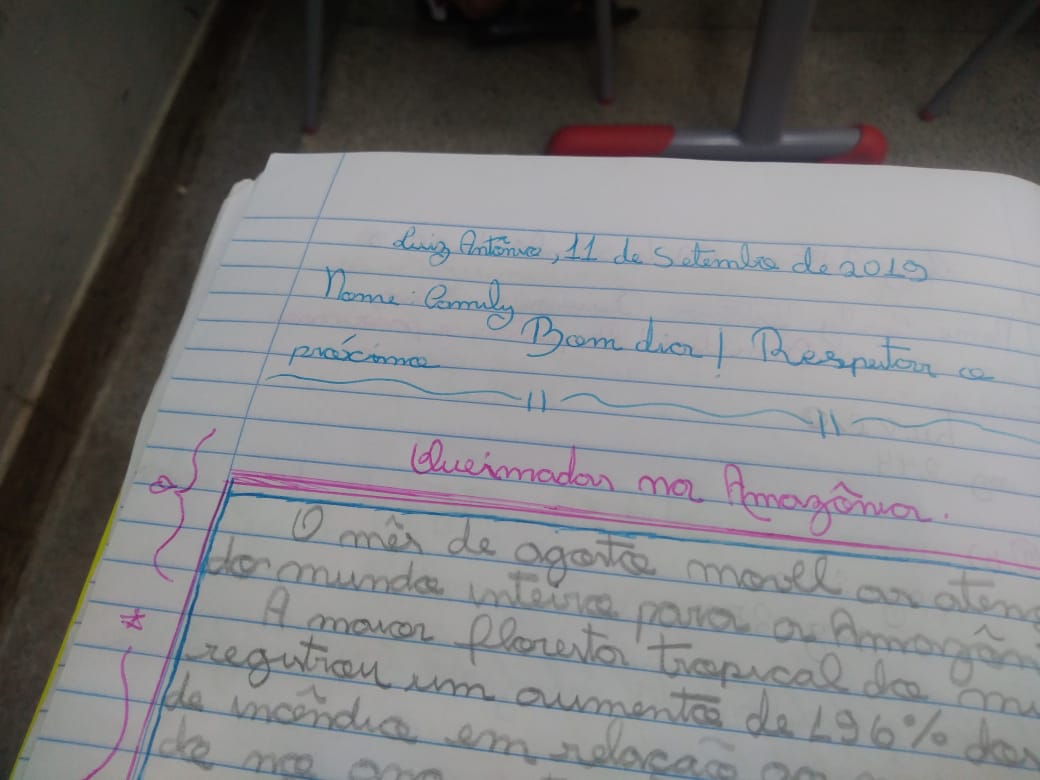 Luiz Antônio, 11 de Setembro de 2019
Nome: Camily
Bom dia! Respeitar o
próximo
Queimadas na Amazônia.
O mês de agosto moveu as aten
do mundo inteiro para a Amazôn
A maior floresta tropical do mu
registrou um aumento de 196% dos
de incêndio em relação ao
do no ano